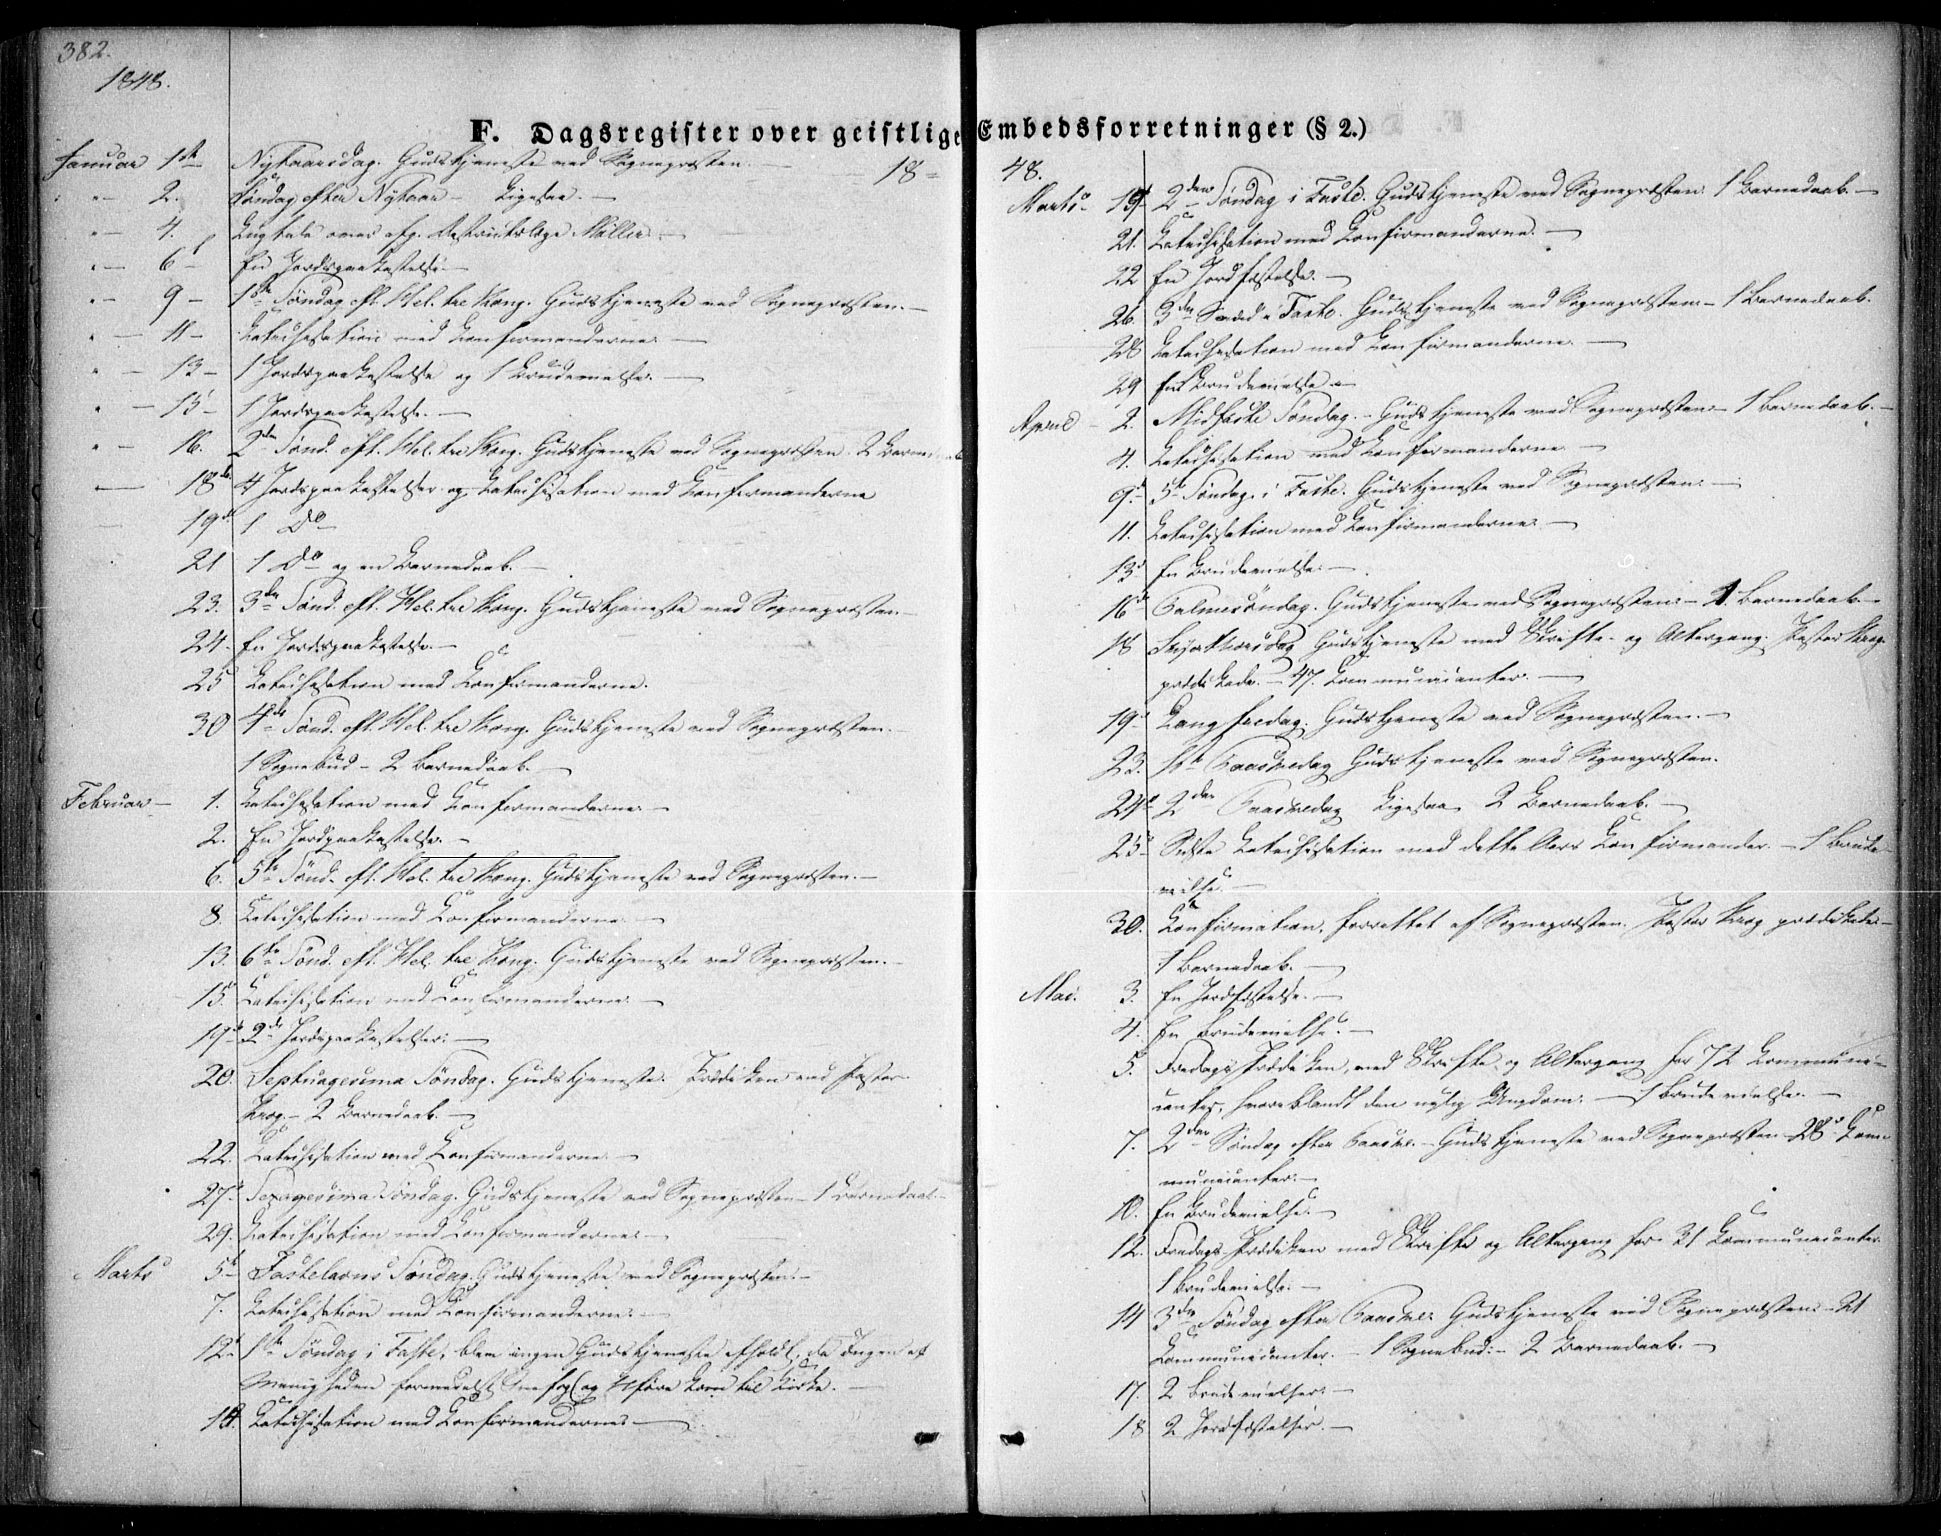 382.
1848.
F. Dagsregister over geistlige Embedsforretninger (§ 2.)
18 - 48.
Januar 1ste Nytaarsdag. Gudstjeneste ved Sognepræsten.
" 2. Søndag efter Nytaar - Ligesaa. -
" 4. Liigtale over afg. Districtslæge Möller. -
" 6 - En Jordspaakastelse. -
" 9 - 1ste Søndag eft. Hel. tre Kong. Gudstjeneste ved Sognepræsten. -
" 11 - Catechisation med Confirmanderne. -
" 13 - 1 Jordspaakastelse og 1 Brudevielse. -
" 15 - 1 Jordspaakastelse. -
" 16. 2den Sønd. eft. Hel. tre Kong. Gudstjeneste ved Sognepræsten. 2 Barnedaab
18de 4 Jordspaakastelser og Catechisation med Confirmanderne
19de 1 Do
21 1 Do og en Barnedaab. -
23. 3die Sønd. eft. Hel. tre Kong. Gudstjeneste ved Sognepræsten. -
24. En Jordspaakastelse. -
25 Catechisation med Confirmanderne.
30 4de Sønd. eft. Hel. tre Kong. Gudstjeneste ved Sognepræsten. -
1 Sognebud - 2 Barnedaab. -
Februar - 1. Catechisation med Confirmanderne. -
2. En Jordpaakastelse. -
6. 5te Sønd. eft. Hel. tre Kong. Gudstjeneste ved Sognepræsten. -
8. Catechisation med Confirmanderne. -
13. 6te Sønd. eft. Hel. tre Kong. Gudstjeneste ved Sognepræsten. -
15. Catechisation med Confirmanderne. -
19de 2de Jordspaakastelser. -
20. Septuagesima Søndag. Gudstjeneste. Prædiken ved Pastor
Krog. - 2 Barnedaab. -
22. Catechisation med Confirmanderne. -
27. Sexagesima Søndag. Gudstjeneste ved Sognepræsten - 1 Barnedaab -
29. Catechisation med Confirmanderne. -
Marts 5te Fastelavns Søndag. Gudstjeneste ved Sognepræsten. -
7. Catechisation med Confirmanderne. -
12te 1ste Søndag i Faste, blev ingen Gudstjeneste afholdt, da Ingen af
Menigheden formedelst Sneefog og Uføre kom til Kirke. -
14. Catechisation med Confirmanderne -
Marts 19de 2den Søndag i Faste. Gudstjeneste ved Sognepræsten. 1 Barnedaab. -
21. Catechisation med Confirmanderne. -
22 En Jordfæstelse. -
26. 3die Sønd. i Faste. Gudstjeneste ved Sognepræsten. - 1 Barnedaab.
28 Catechisation med Confirmanderne. -
29 En Brudevielse -
April - 2. Midfaste Søndag. - Gudstjeneste ved Sognepræsten. - 1 Barnedaab. -
4. Catechisation med Confirmanderne -
9de 5te Søndag i Faste. Gudstjeneste ved Sognepræsten. -
11. Catechisation med Confirmanderne. -
13de En Brudevielse. -
16de Palmesøndag. Gudstjeneste ved Sognepræsten. - 1. Barnedaab. -
18 Skjærthorsdag Gudstjeneste med Skrifte- og Altergang. Pastor Krog
prædikede. - 47. Communicanter. -
19 - Langfredag. Gudstjeneste ved Sognepræsten. -
23. 1ste Paaskedag Gudstjeneste ved Sognepræsten.
24de 2den Paaskedag Ligesaa 2 Barnedaab. -
25 Sidste Catechisation med dette Aars Confirmander. - 1 Brude-
vielse. -
30. Confirmation, forrettet af Sognepræsten. Pastor Krog prædikede. -
1 Barnedaab. -
Mai. 3. En Jordfæstelse. -
4. En Brudevielse. -
5. Fredags Prædiken, med Skrifte- og Altergang for 72 Communi-
canter, hvoriblandt den nylig Ungdom. - 1 Brudevielse. -
7. 2den Søndag efter Paaske. - Gudstjeneste ved Sognepræsten - 28 Com-
municanter. -
10. En Brudevielse. -
12. Fredags-Prædiken med Skrifte og Altergang for 31 Communicanter.
1 Brudevielse. -
14 3die Søndag efter Paaske. Gudstjeneste ved Sognepræsten. - 21
Communicanter. - 1 Sognebud. - 2 Barnedaab. -
17. 2 Brudevielser. -
18 2 Jordfæstelser. -